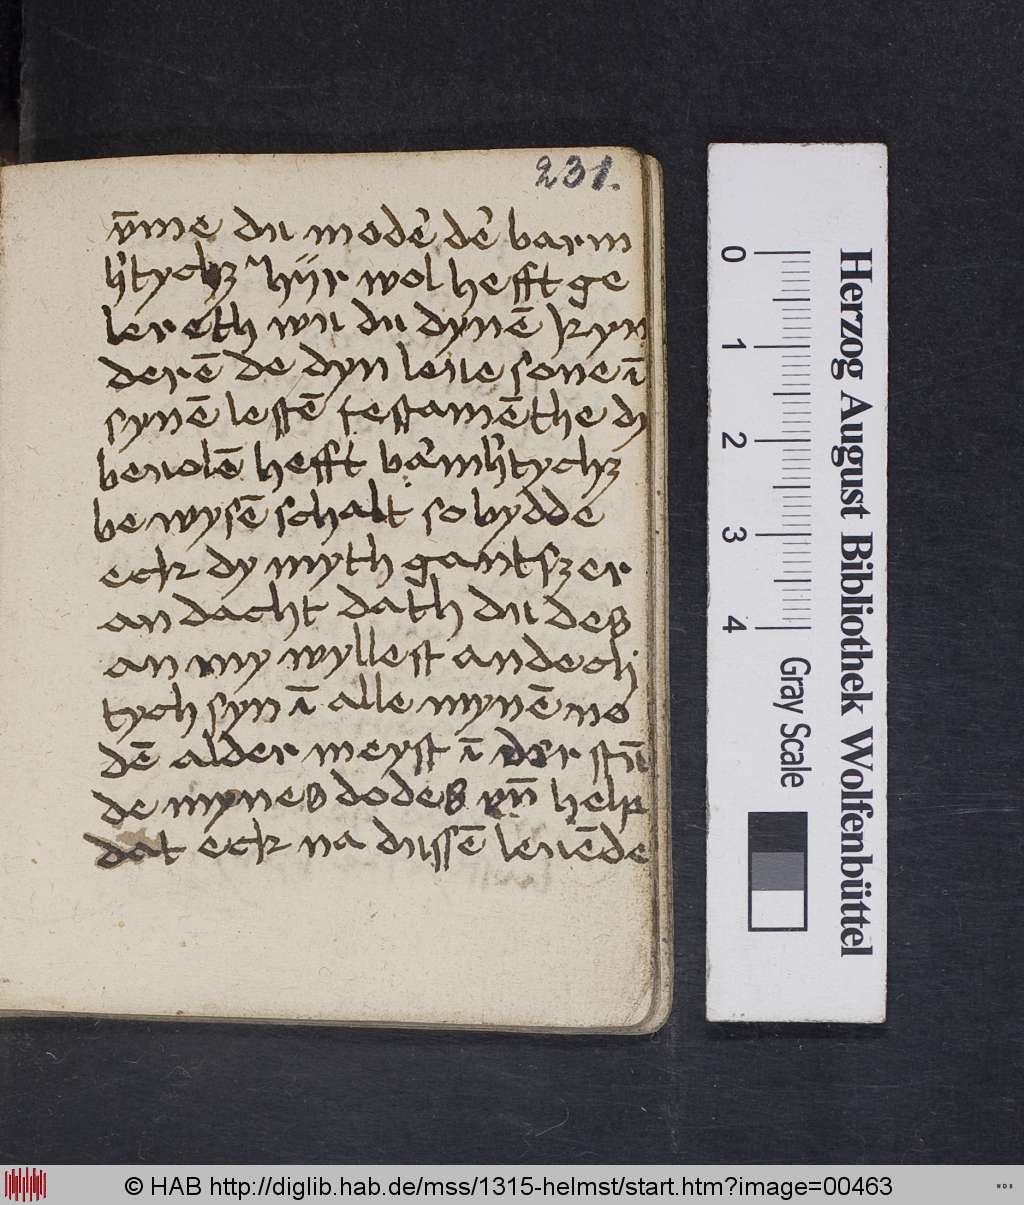 231.
v̄me du mode᷑ de᷑ barm
h᷑tychz hÿr wol hefft ge
lereth wu du dynē kyn
derē de dyn leue sone ī
synē lestē testamēthe dy
beuolē hefft ba᷑mh᷑tychz
be wysē schalt so bydde
eck dy myth gantszer
an dacht dath du des
an my wyllest andech
tych syn ī alle mynē no
dē alder meyst ī der stū
de mynes dodes vn̄ help
dat eck na dussē leuēde
Herzog August Bibliothek Wolfenbüttel
0 1 2 3 4
Gray Scale
© HAB http://diglib.hab.de/mss/1315-helmst/start.htm?image=00463